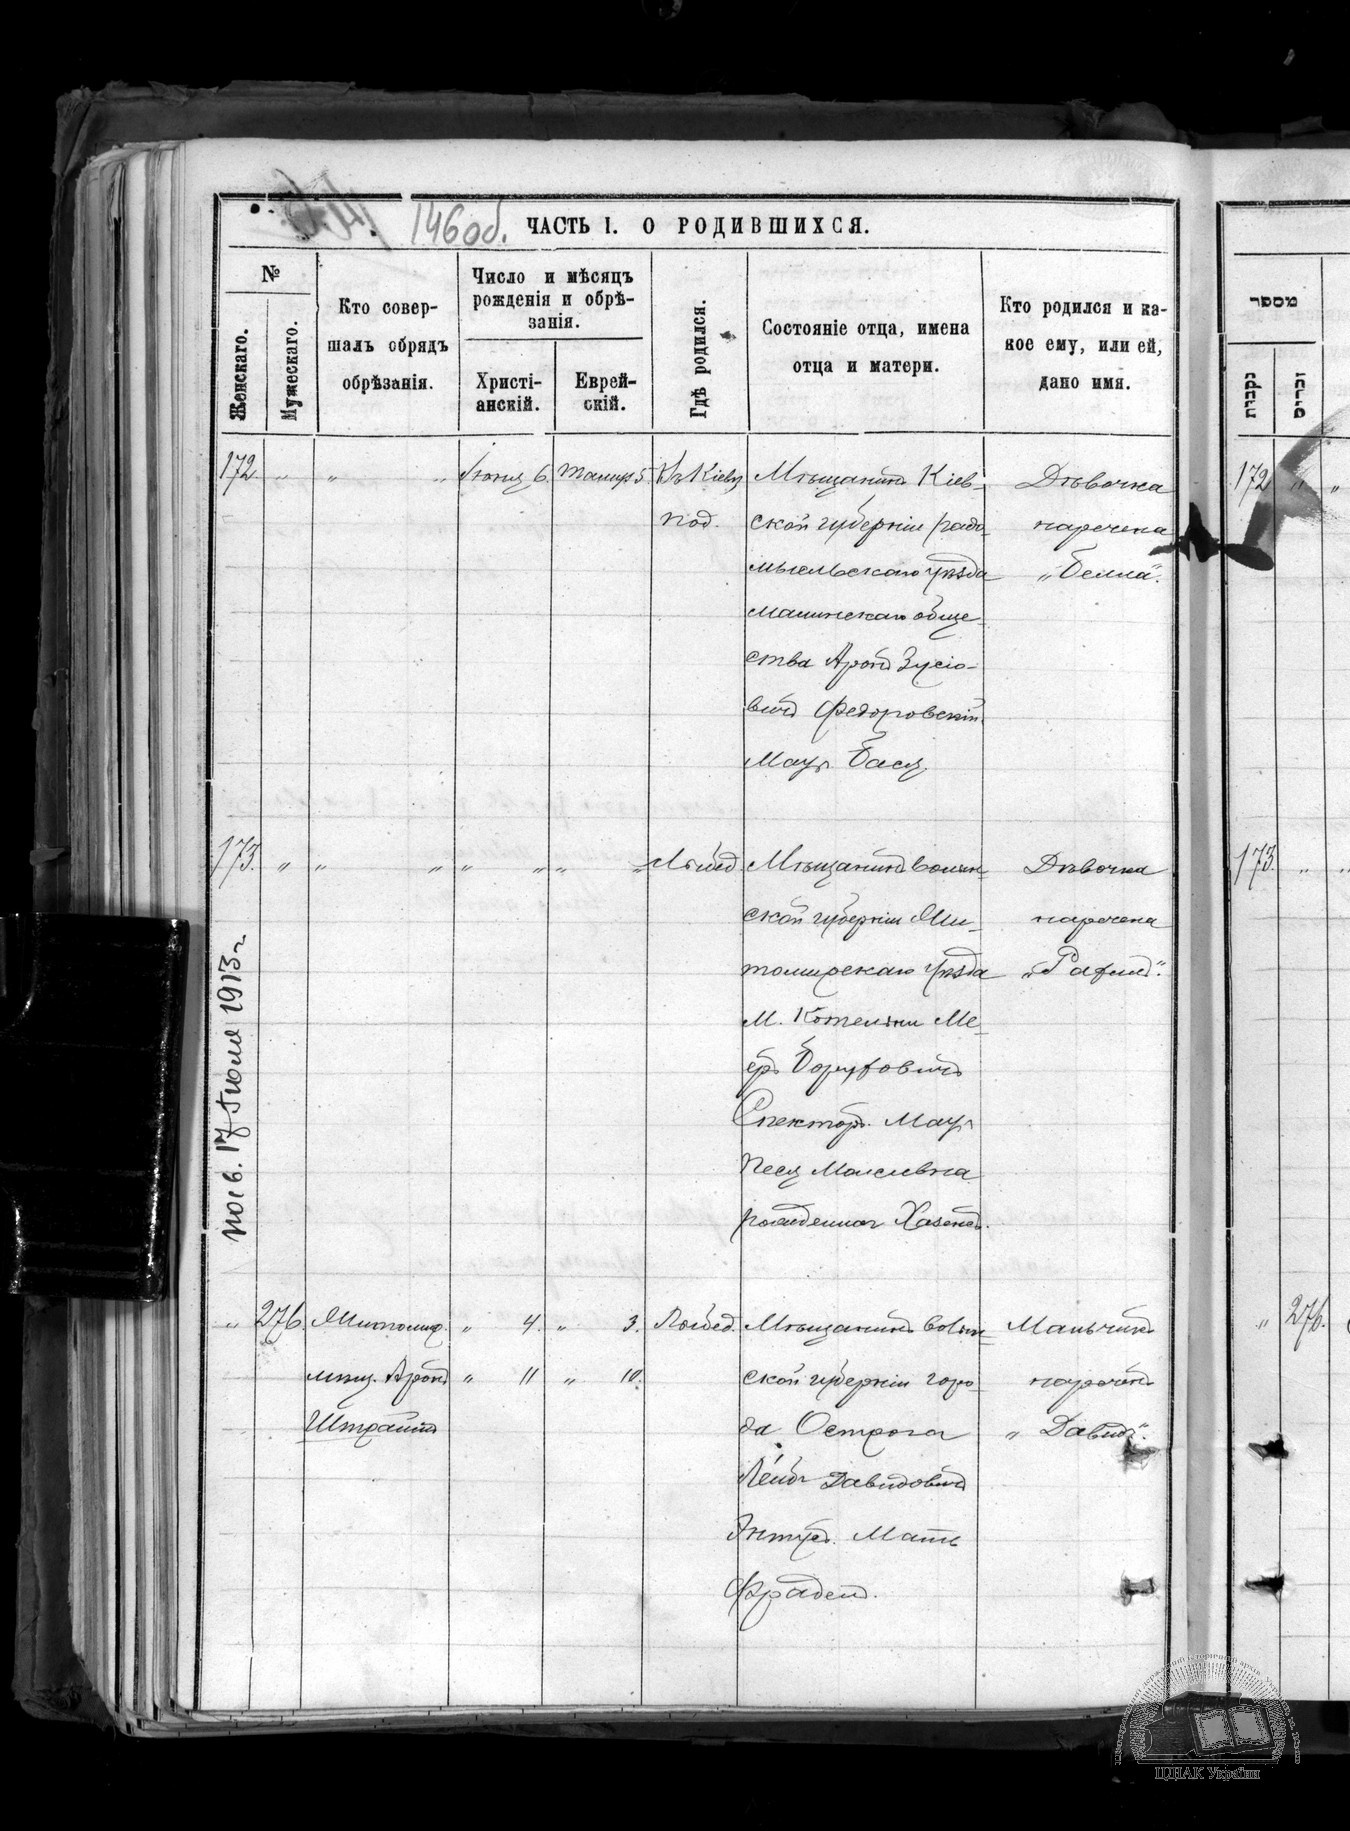 146об.
ЧАСТЬ I. О РОДИВШИХСЯ.
№
Женскаго.
Мужескаго.
Кто совер-
шалъ обрядъ
обрѣзанія.
Число и мѣсяцъ
рожденія и обрѣ-
занія.
Христі-
анскій.
Еврей-
скій.
Гдѣ родился.
Состояніе отца, имена
отца и матери.
Кто родился и ка-
кое ему, или ей,
дано имя.
מספר
נקבות
זכרים
172 " " " Іюня 6. Тамуз 5 Въ Кіевѣ
под.
Мѣщанинъ Кіев-
ской губерніи радо-
мысльскаго уѣзда
малинскаго обще-
ства Аронъ Зусіо-
вичъ Федоровскій
Мать Бася
Дѣвочка
наречена
„Белла“.
172 " "
173. " " " " " " "
Мѣщанинъ волын-
ской губерніи Жи-
томирскаго уѣзда
м. Котельни Ме-
еръ Боруховичъ
Спекторъ. Мать
Песя Моисеевна
рожденная Хазенъ.
Дѣвочка
наречена
„Рахиль“.
173. " "
посв. 17 Іюля 1913 г.
" 276. Житомир. " 4. " 3.
мѣщ. Аронъ " 11 " 10.
Штраймъ
Мѣщанинъ волын-
ской губерніи горо-
да Острога
Лейба Давидовичъ
Мать
Фрадель.
Мальчикъ
нареченъ
„Давидъ“.
" 276.
ЦДІАК України